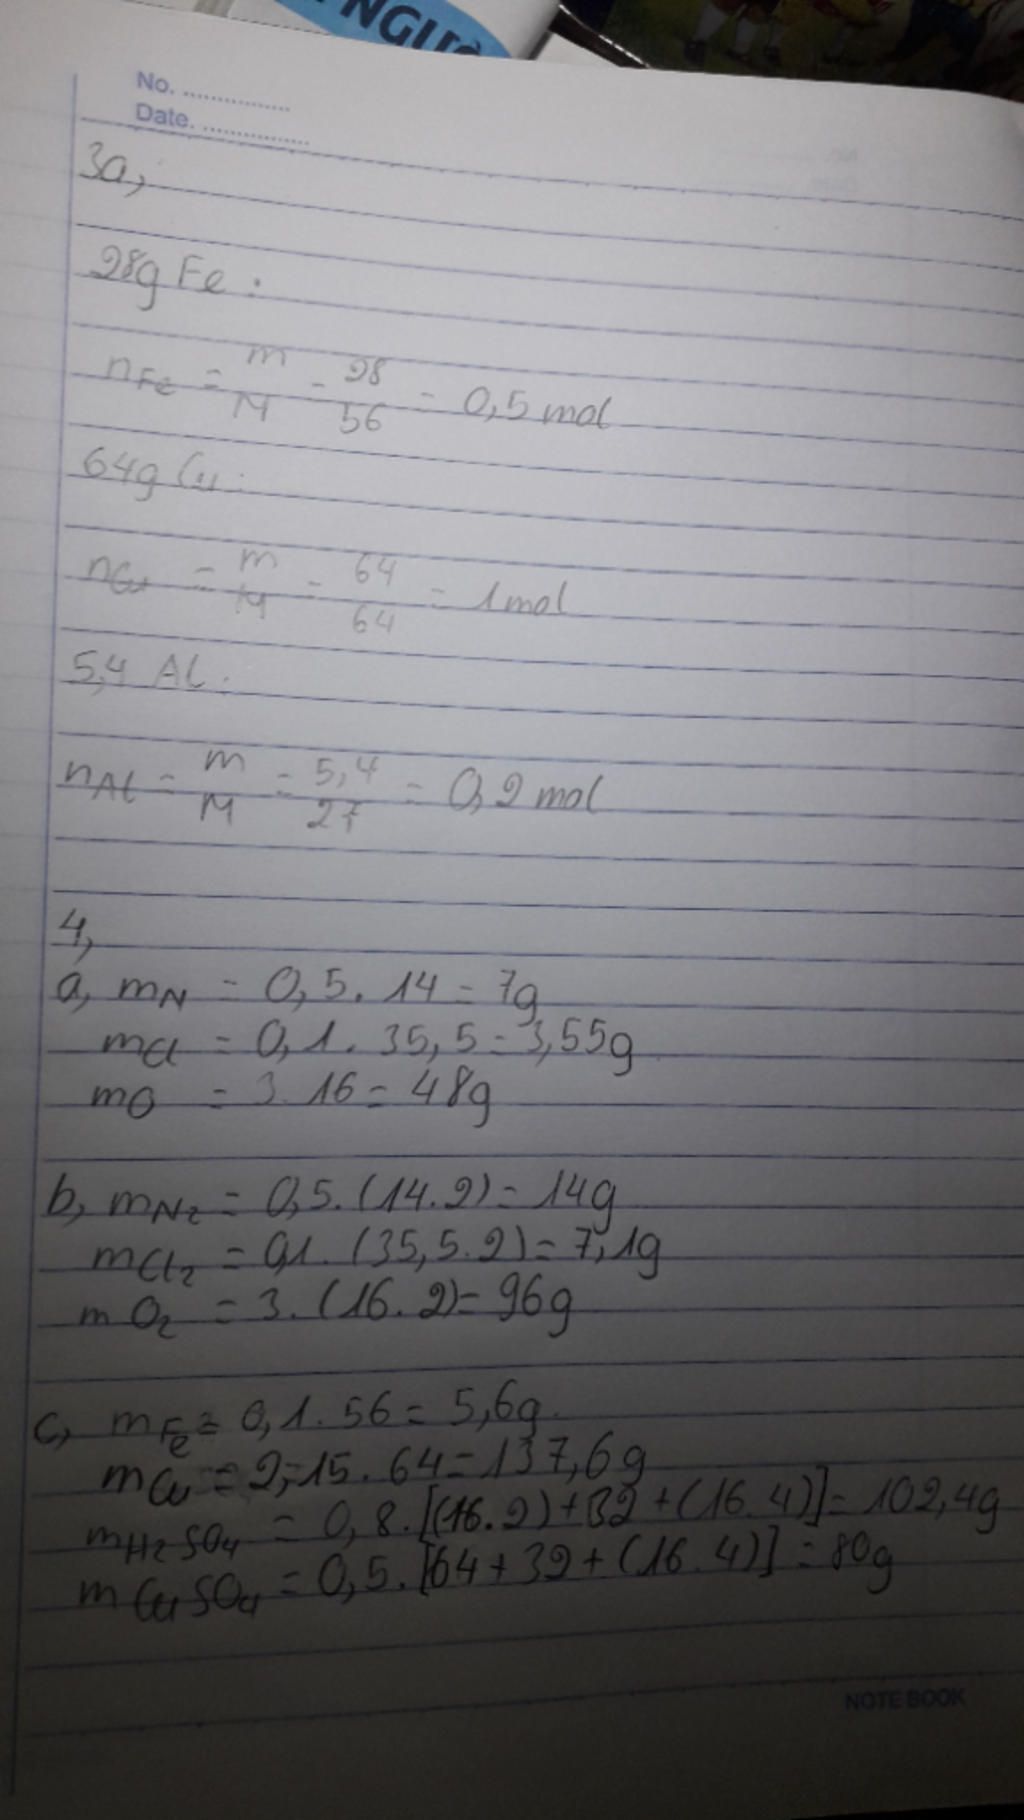 NGUC
No. ................
Date. ................
3a,
28g Fe :
nFe = m/M = 28/56 = 0,5 mol
64g Cu :
nCu = m/M = 64/64 = 1 mol
5,4 Al :
nAl = m/M = 5,4/27 = 0,2 mol
4,
a, mN = 0,5. 14 = 7g
mCl = 0,1. 35,5 = 3,55g
mO = 3. 16 = 48g
b, mN2 = 0,5. (14. 2) = 14g
mCl2 = 0,1. (35,5. 2) = 7,1g
mO2 = 3. (16. 2) = 96g
c, mFe = 0,1. 56 = 5,6g.
mCu = 2,15. 64 = 137,6g
mH2SO4 = 0,8. [(16. 2) + 32 + (16. 4)] = 102,4g
mCuSO4 = 0,5. [64 + 32 + (16. 4)] = 80g
NOTE BOOK